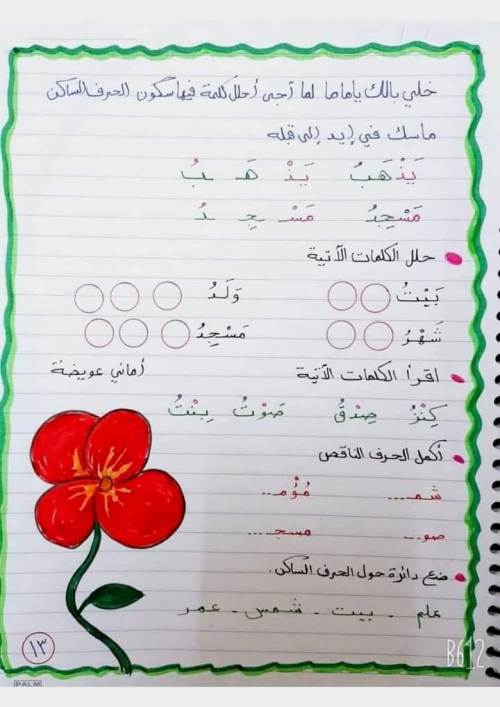 خلي بالك ياماما لما أجى أحلل كلمة فيها سكون الحرف الساكن
ماسك في إيد إلى قبله
يَذْهَبُ يَذْ هَـ ـبُ
مَسْجِدُ مَسْـ ـجِـ ـدُ
حلل الكلمات الآتية
بَيْتُ وَلَدُ
شَهْرُ مَسْجِدُ
اقرأ الكلمات الآتية أماني عويضة
كِنْزُ صِدْقُ صَوْتُ بِنْتُ
أكمل الحرف الناقص
شمـ.... مُؤْمـ...
صو... مسجـ....
ضع دائرة حول الحرف الساكن.
علم - بيت - شمس - عمر
١٣
B612
PALM